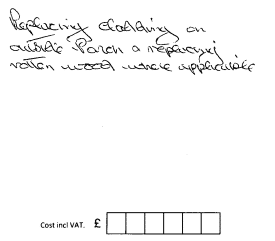 Replacing cladding on
outside Porch & replacing
rotten wood where applicable
Cost incl VAT. £